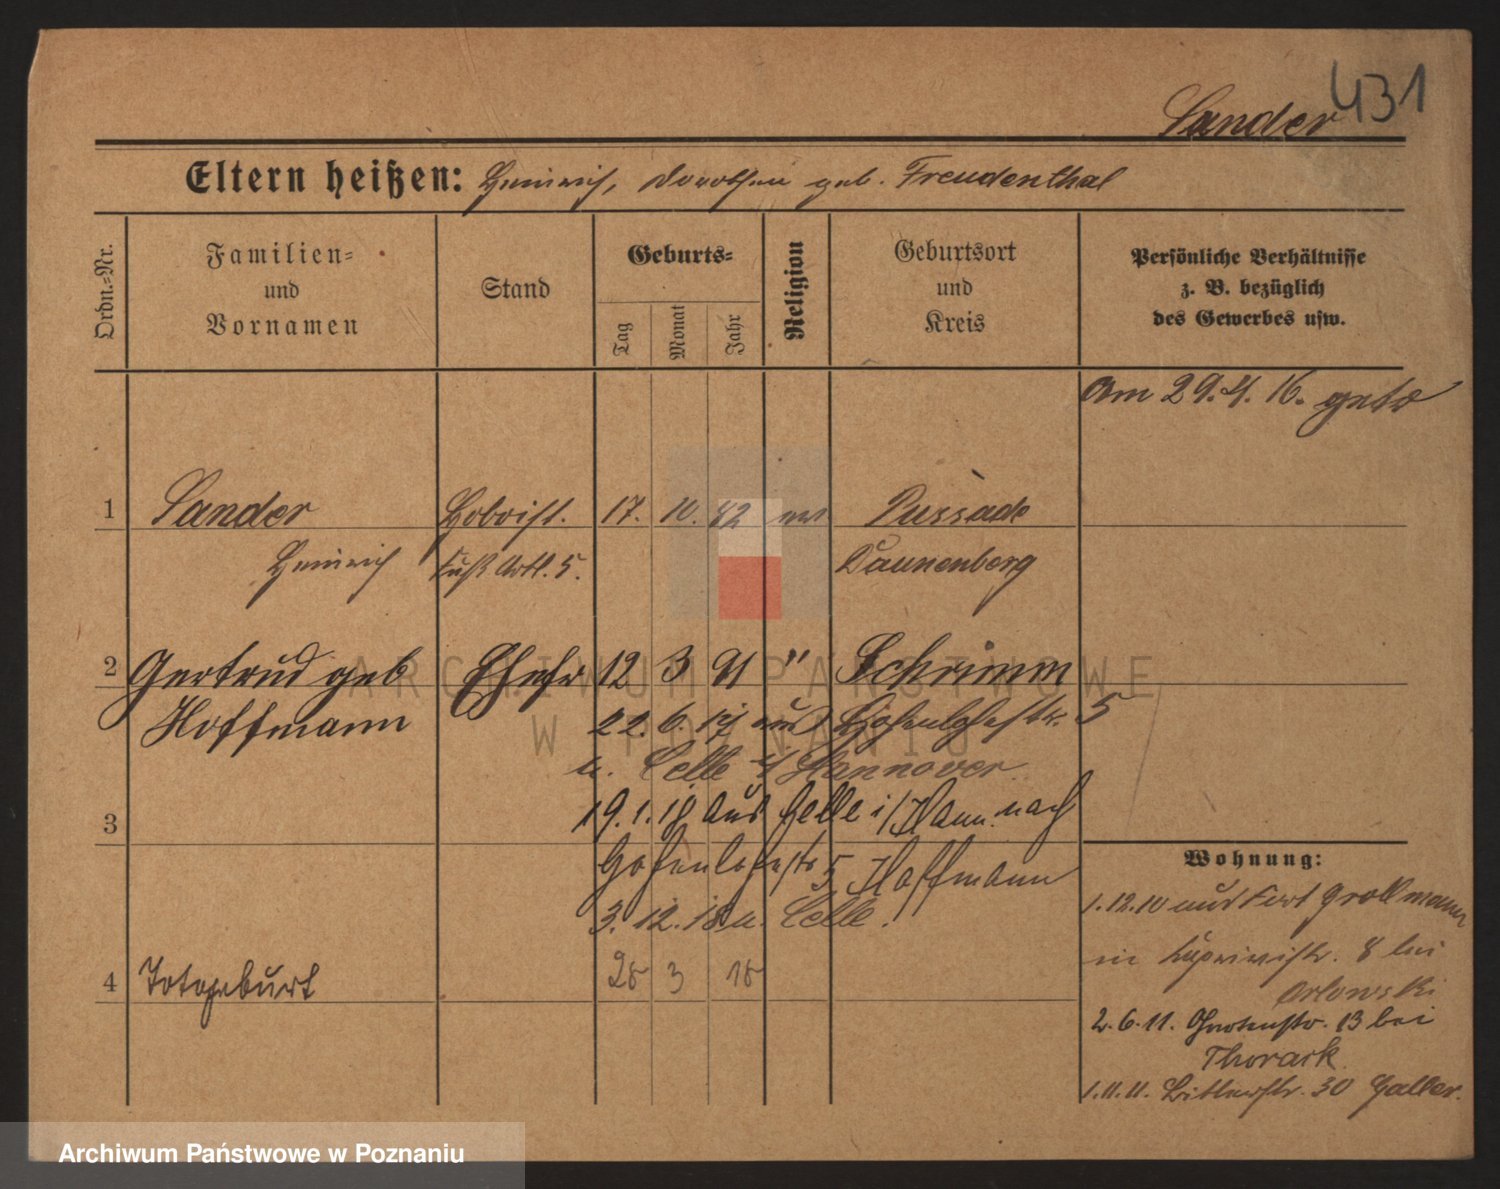 431
Sander
Eltern heißen: Heinrich, Dorothea geb. Freudenthal
Ordn.=Nr.
Familien=
und
Vornamen
Stand
Geburts=
Tag
Monat
Jahr
Religion
Geburtsort
und
Kreis
Persönliche Verhältnisse
z. B. bezüglich
des Gewerbes usw.
Am 29.4.16. getr
1 Sander Hoboist. 17. 10. 82 ev Pussade
Heinrich Fuß Artl. 5. Dannenberg
2 Gertrud geb Ehefr 12 3 91 " Schrimm
Hoffmann
22.6.17 aus Hohenlohestr. 5
n. Celle i/Hannover.
19.1.18 aus Celle i/Hann. nach
3
Hohenlohestr 5 Hoffmann
3.12.18 n. Celle.
4 Totgeburt 28 3 18
Wohnung:
1.12.10 aus Fort Grollmann
in Caprivistr. 8 bei
Orlowski
2.6.11. Gartenstr. 13 bei
Thorark
1.11.11. Bitterstr. 30 Haller.
ARCHIWUM PAŃSTWOWE
W POZNANIU
Archiwum Państwowe w Poznaniu